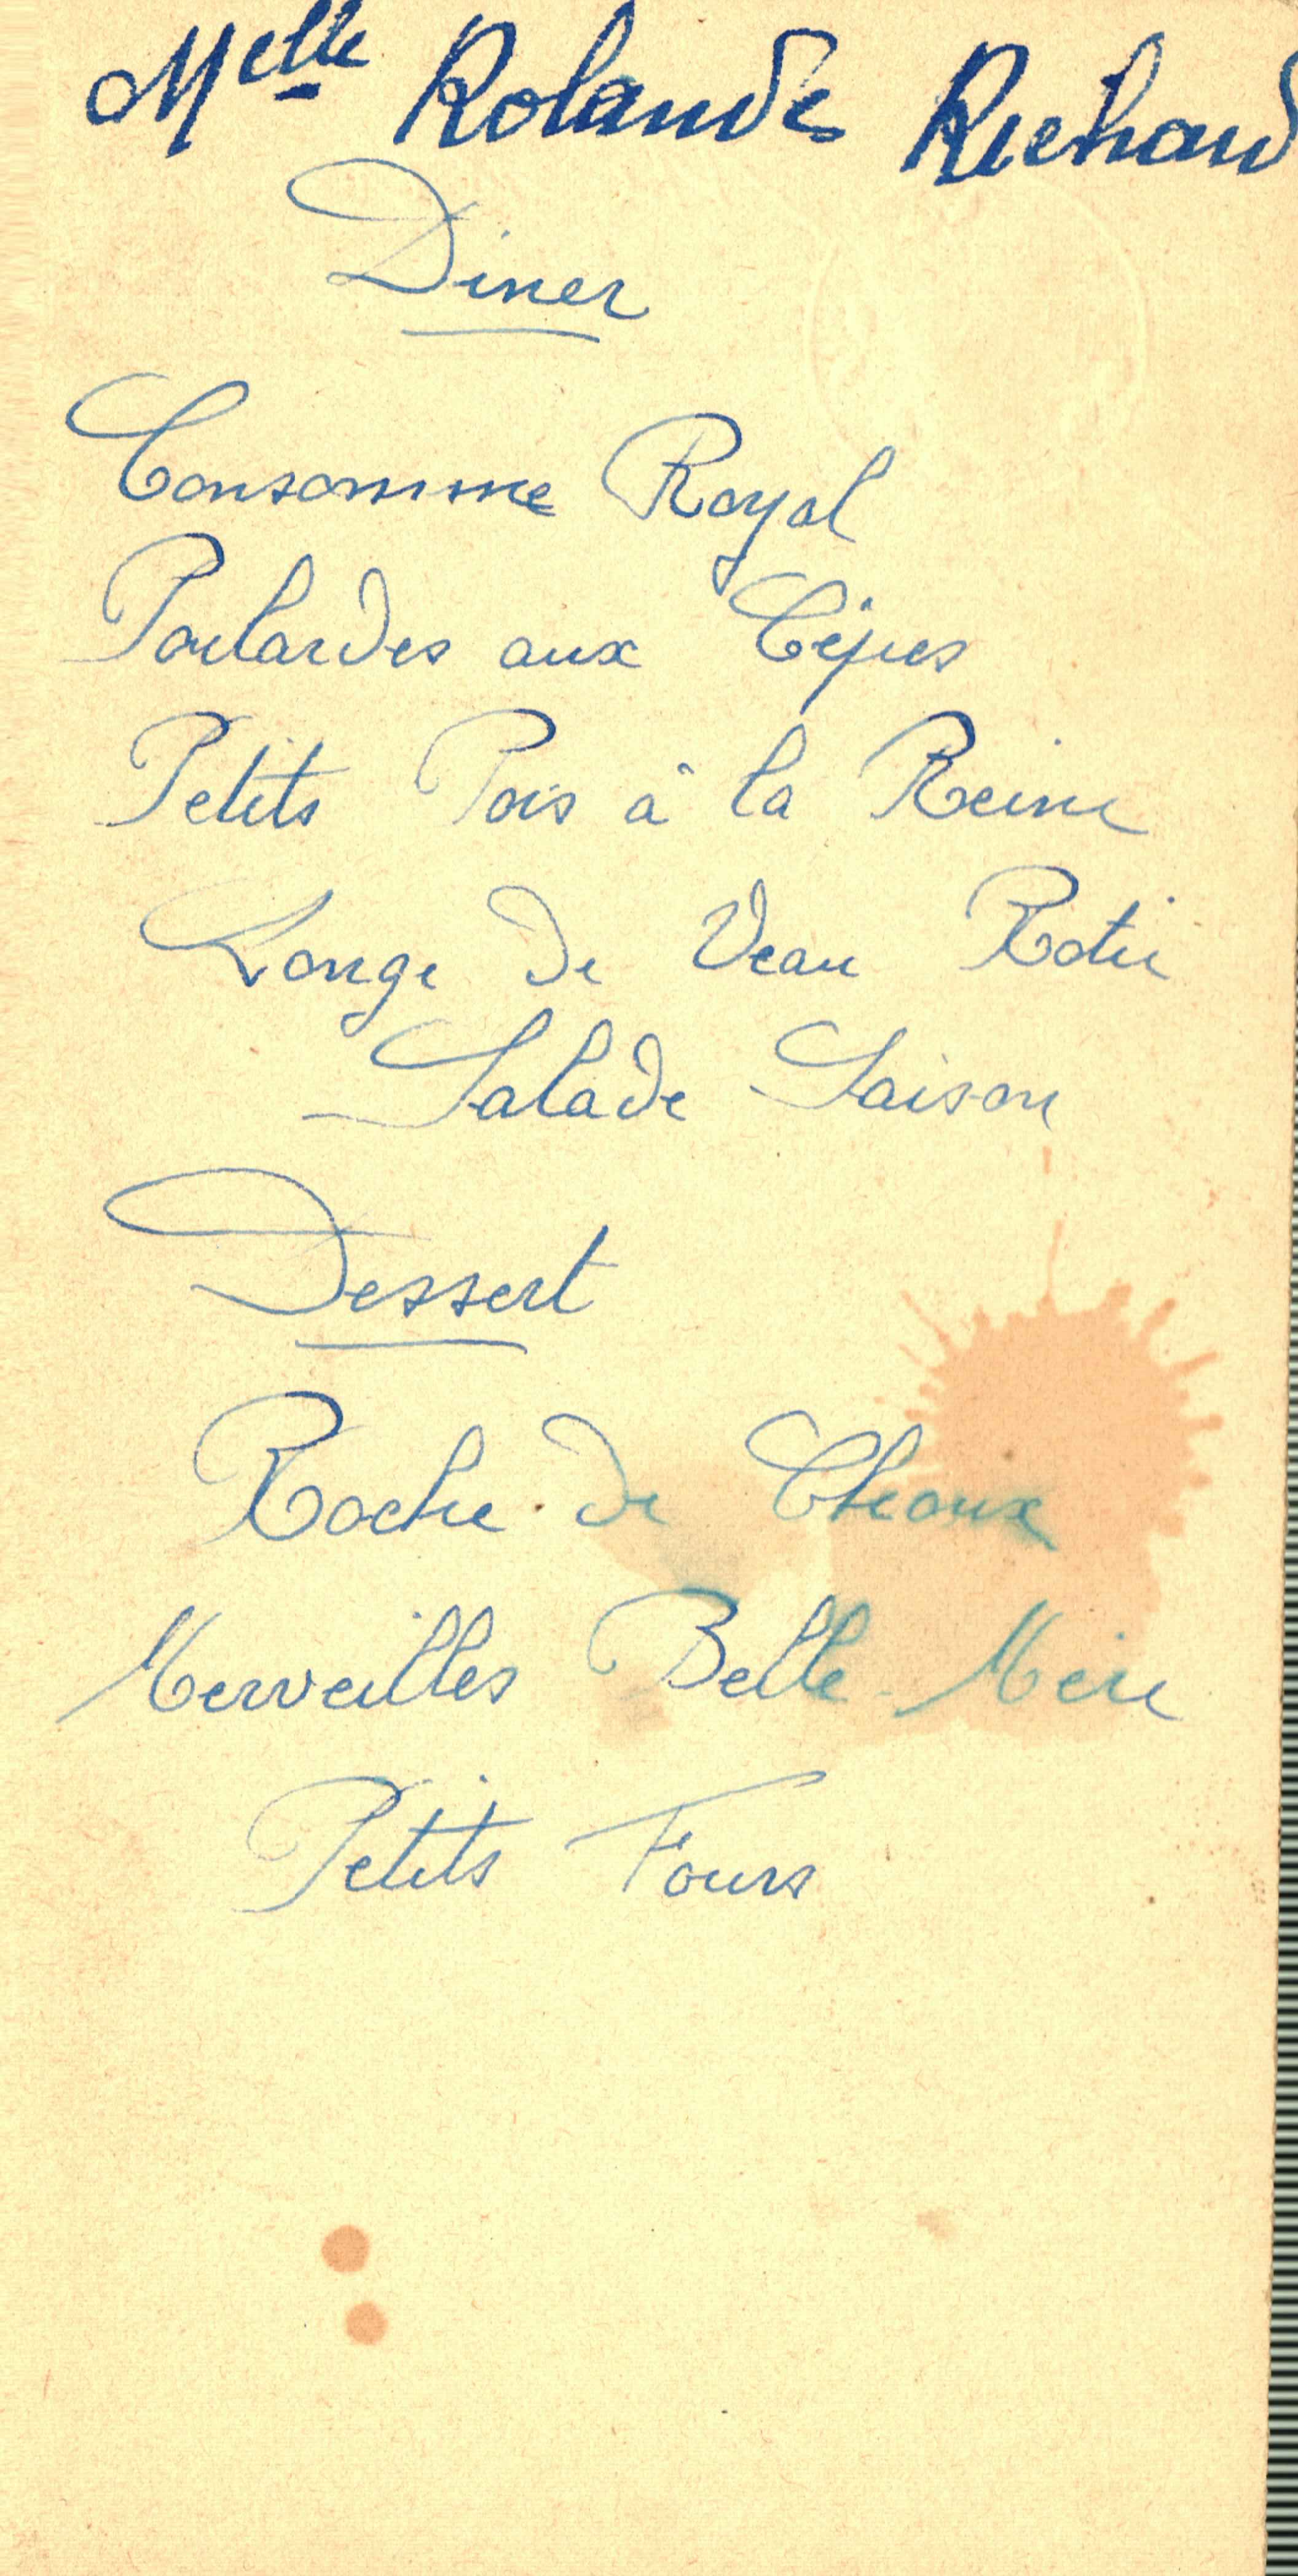 Melle Rolande Richard
Diner
Consomme Royal
Poulardes aux Cèpes
Petits Pois à la Reine
Longe de Veau Rotie
Salade Saison
Dessert
Roche de Choux
Merveilles Belle-Mère
Petits Fours